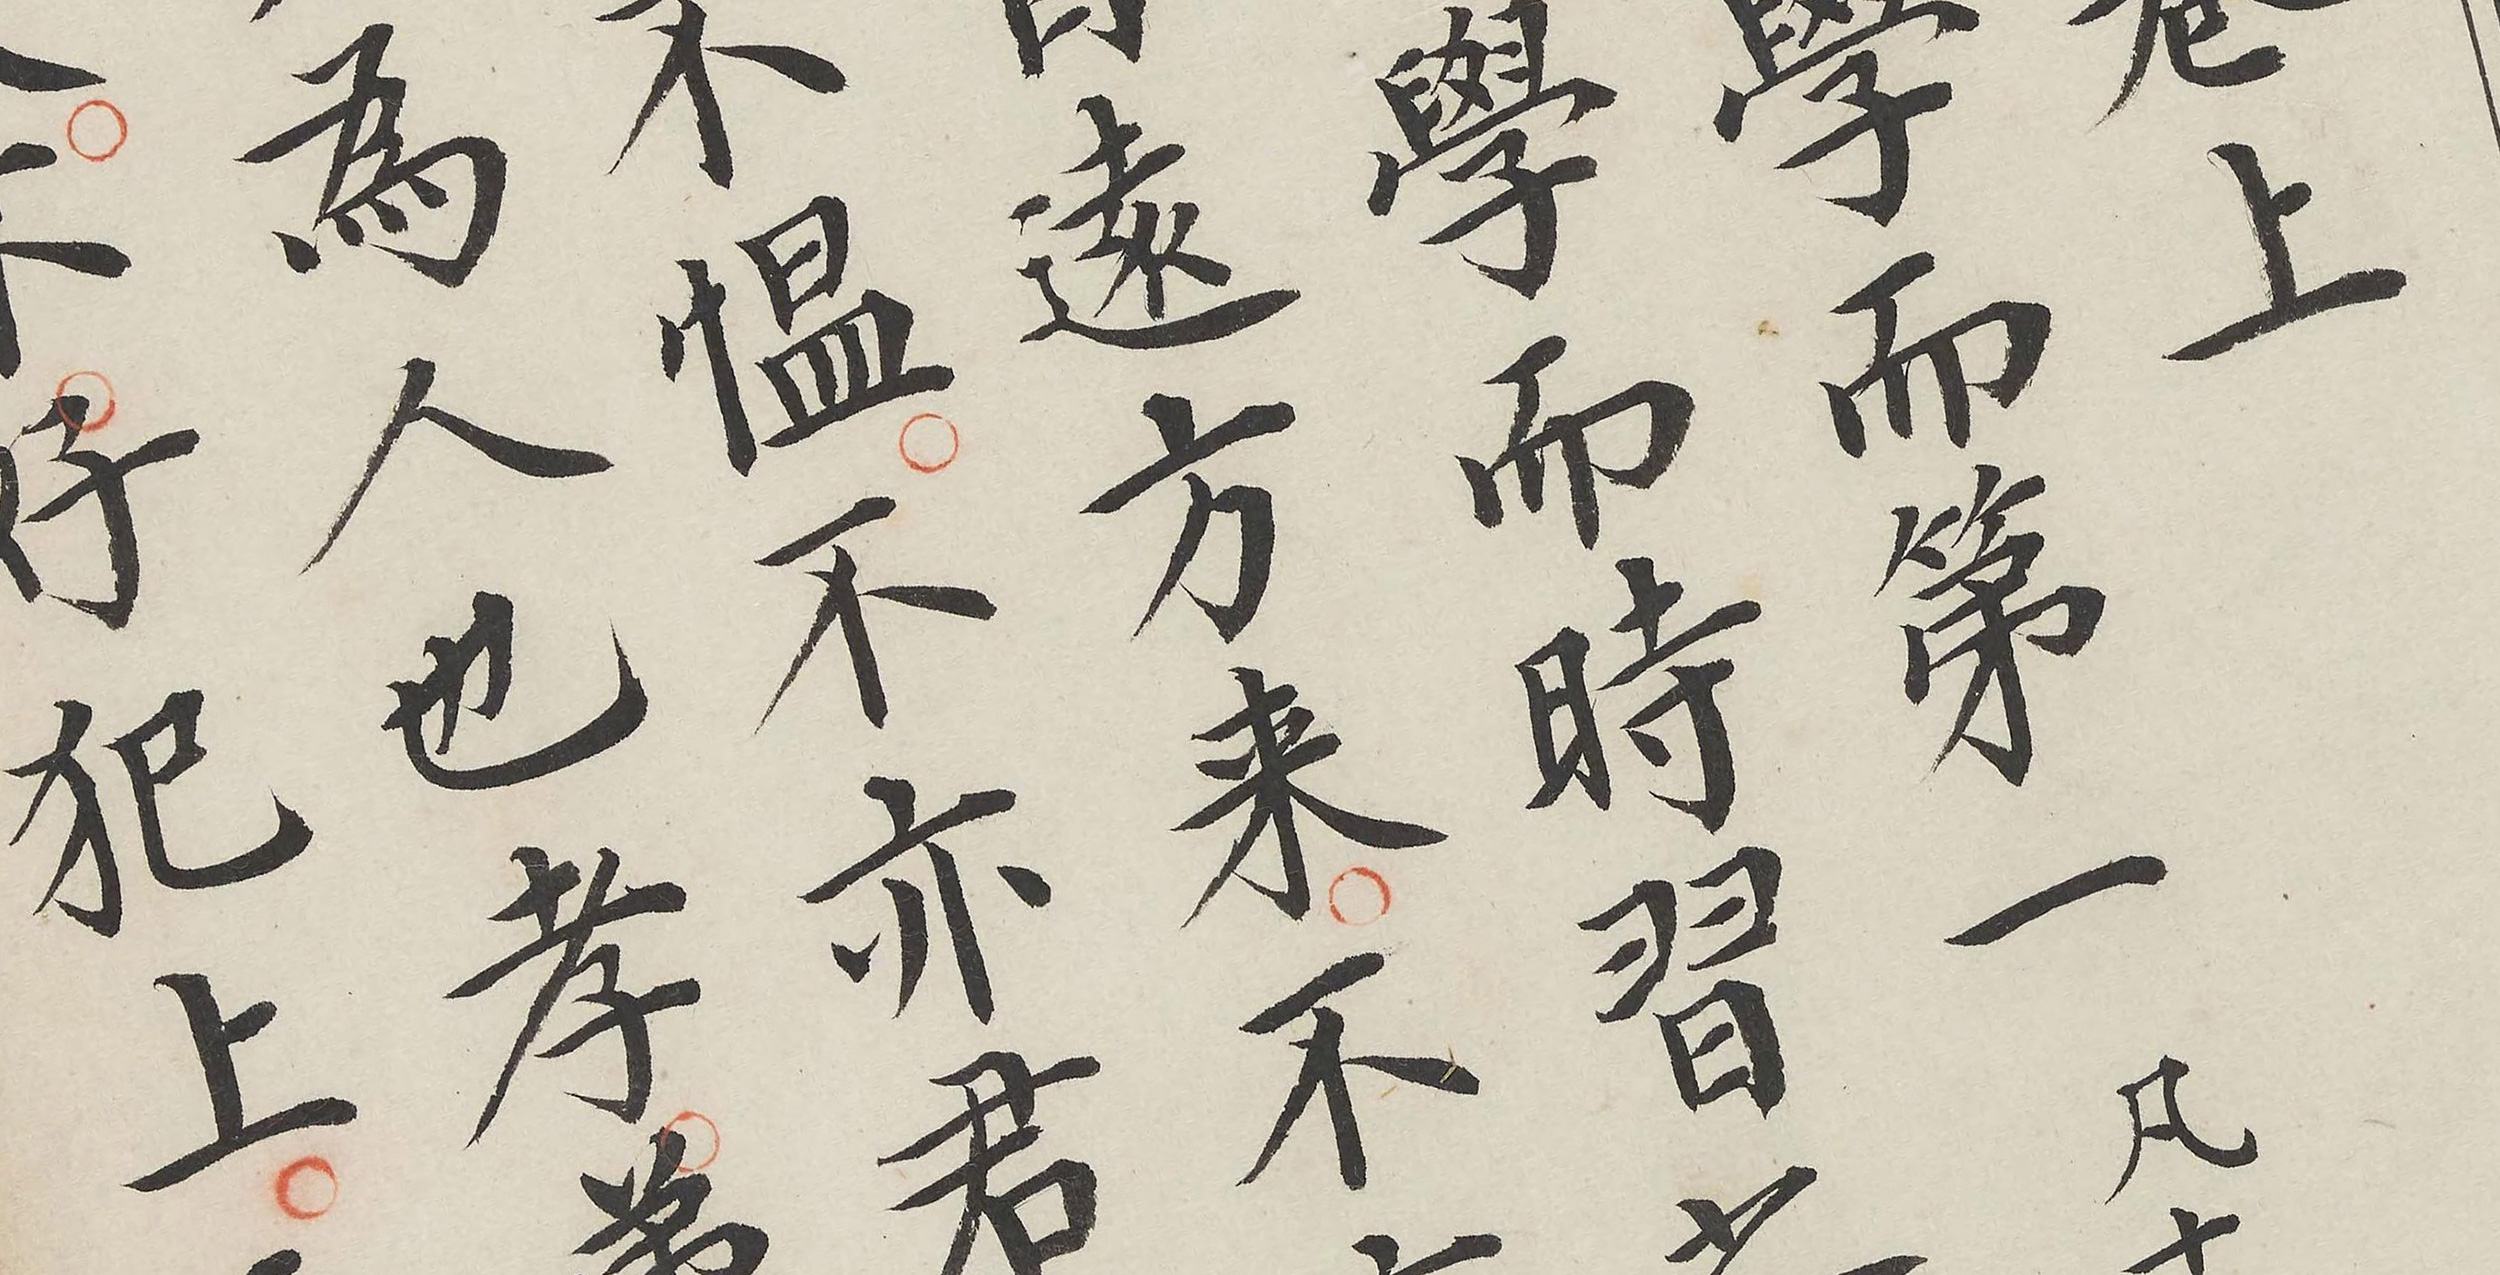 卷上
學而第一 凡十
學而時習
自遠方来不亦
不愠不亦君
為人也孝弟
不好犯上